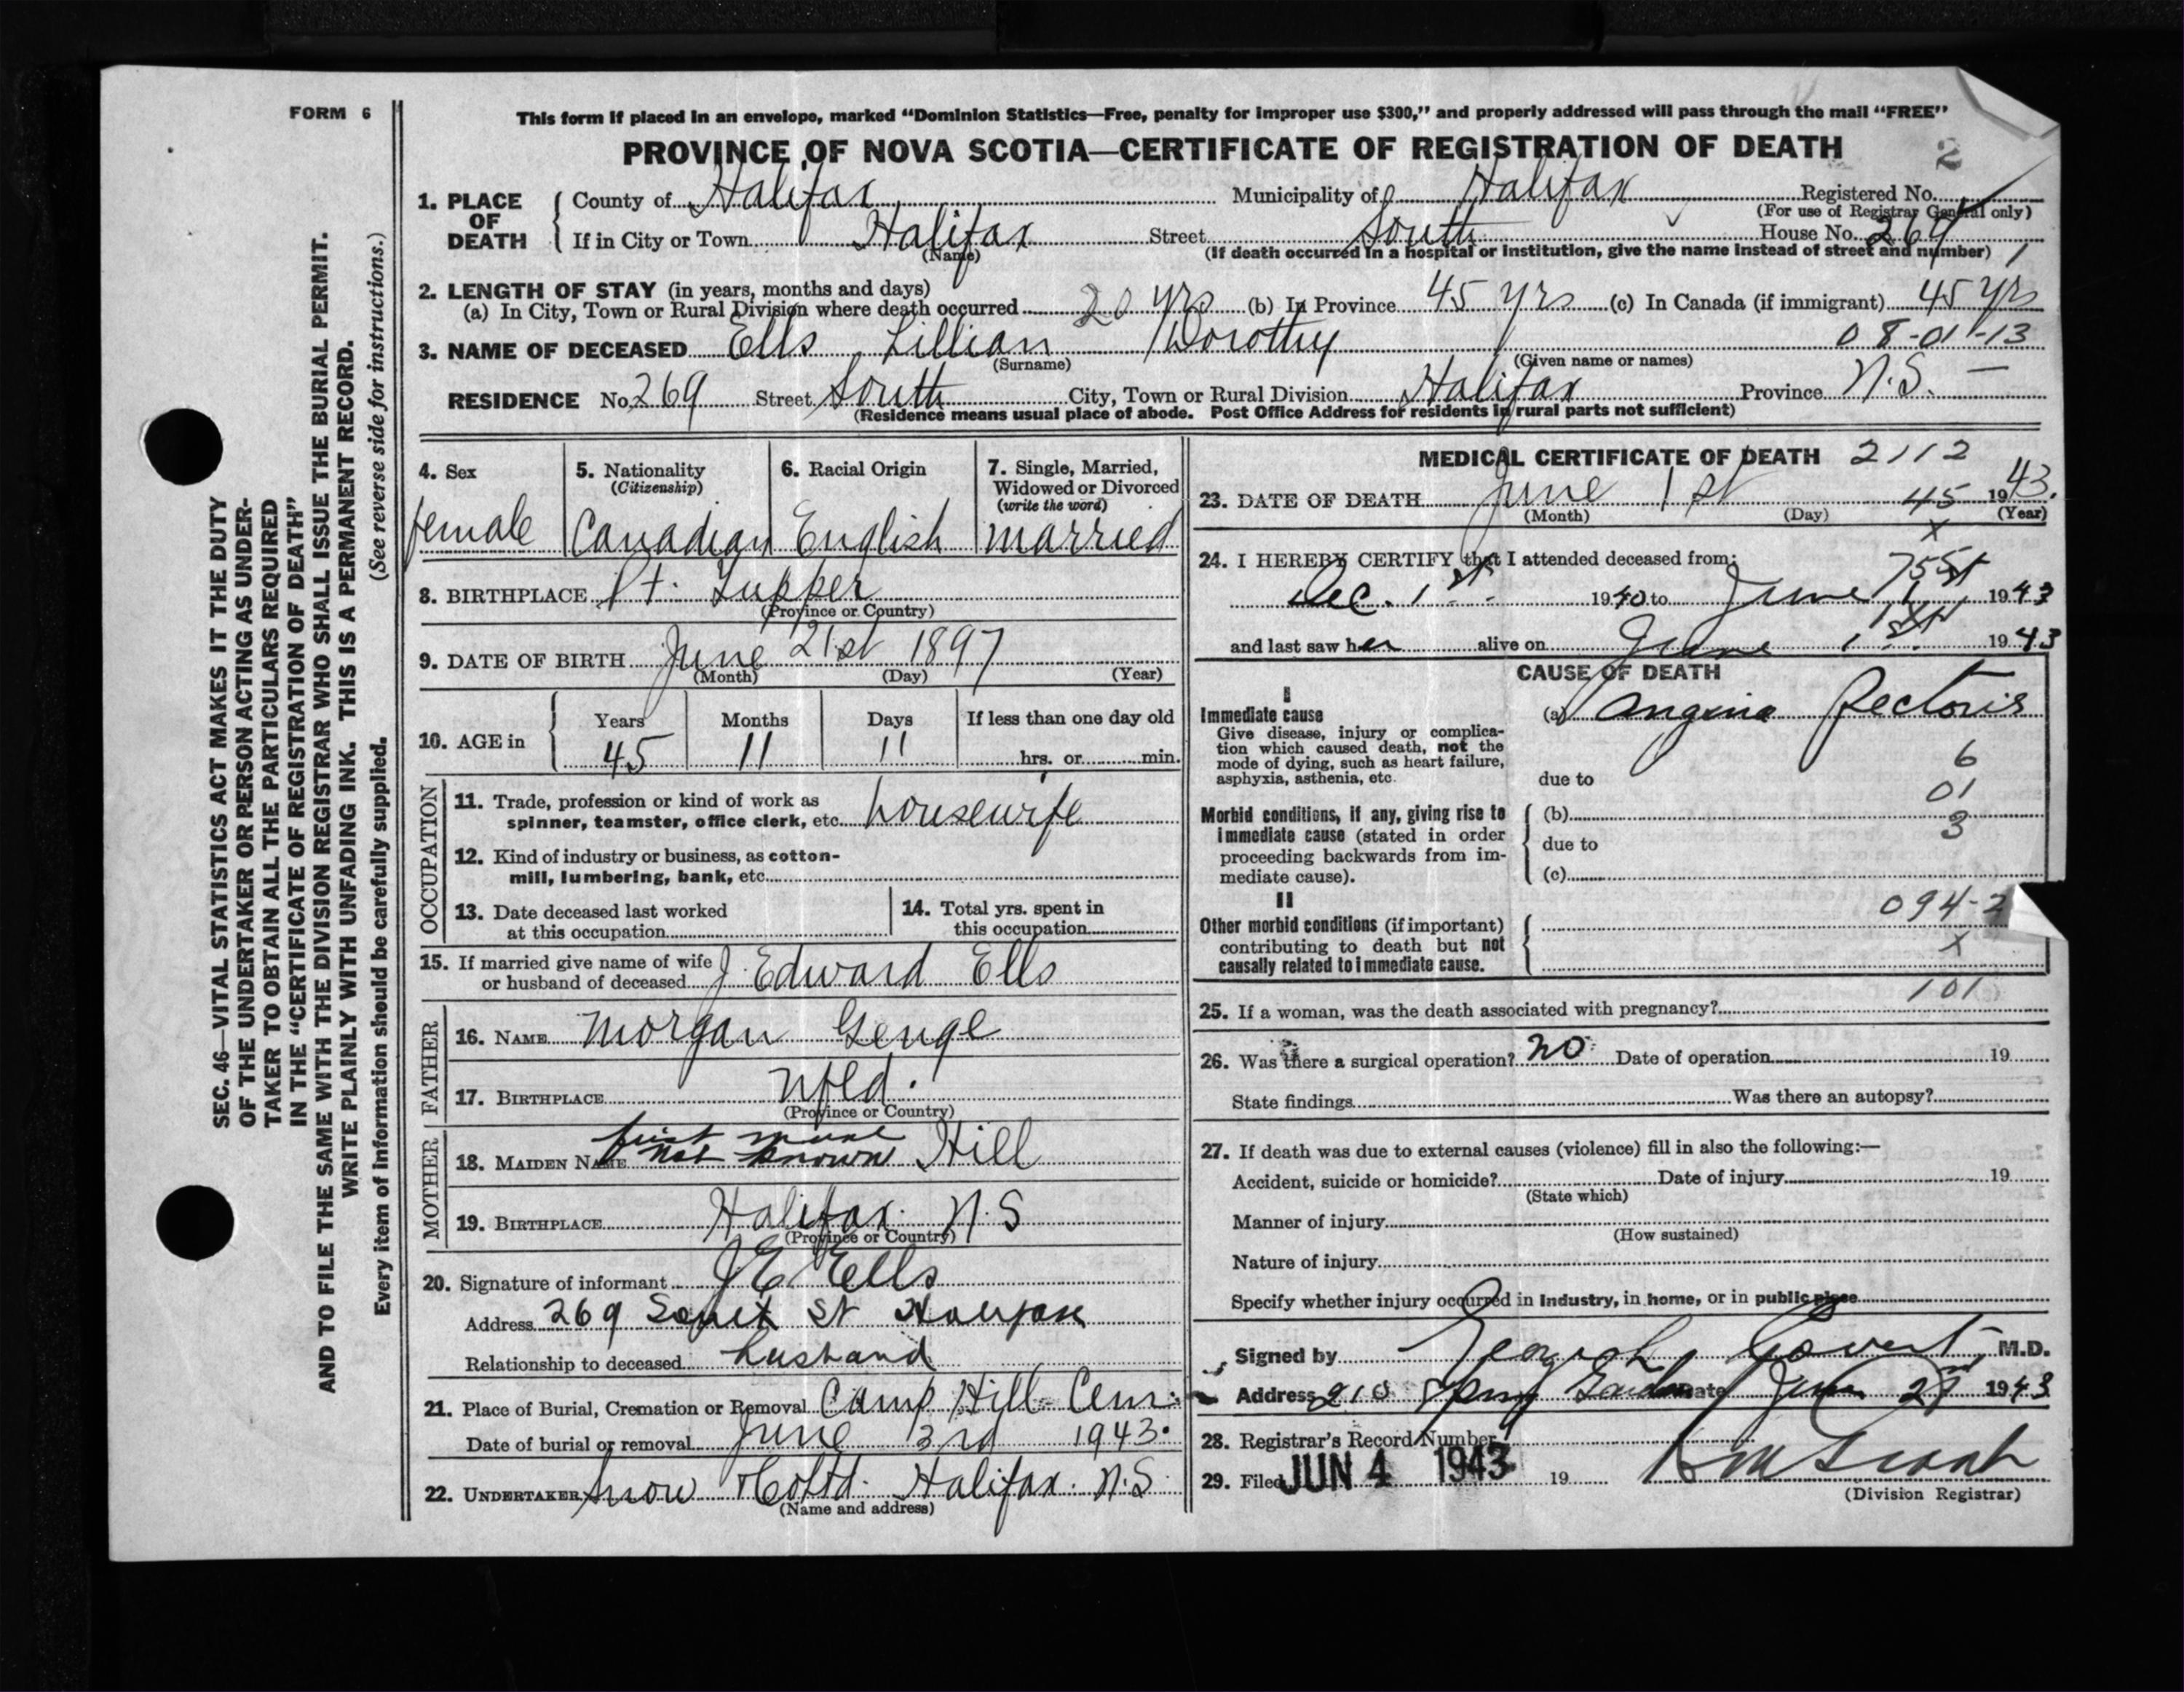 FORM 6
SEC. 46—VITAL STATISTICS ACT MAKES IT THE DUTY
OF THE UNDERTAKER OR PERSON ACTING AS UNDER-
TAKER TO OBTAIN ALL THE PARTICULARS REQUIRED
IN THE "CERTIFICATE OF REGISTRATION OF DEATH"
AND TO FILE THE SAME WITH THE DIVISION REGISTRAR WHO SHALL ISSUE THE BURIAL PERMIT.
WRITE PLAINLY WITH UNFADING INK. THIS IS A PERMANENT RECORD.
Every item of information should be carefully supplied. (See reverse side for instructions.)
This form if placed in an envelope, marked "Dominion Statistics—Free, penalty for improper use $300," and properly addressed will pass through the mail "FREE"
PROVINCE OF NOVA SCOTIA—CERTIFICATE OF REGISTRATION OF DEATH
2
1. PLACE OF DEATH
County of Halifax Municipality of Halifax Registered No.
(For use of Registrar General only)
If in City or Town Halifax Street South House No. 269
(Name) (If death occurred in a hospital or institution, give the name instead of street and number) 1
2. LENGTH OF STAY (in years, months and days)
(a) In City, Town or Rural Division where death occurred 20 yrs (b) In Province 45 yrs (c) In Canada (if immigrant) 45 yrs
08-01-13
3. NAME OF DECEASED Ells, Lillian Dorothy
(Surname) (Given name or names)
RESIDENCE No. 269 Street South City, Town or Rural Division Halifax Province N.S. —
(Residence means usual place of abode. Post Office Address for residents in rural parts not sufficient)
4. Sex female
5. Nationality (Citizenship) Canadian
6. Racial Origin English
7. Single, Married, Widowed or Divorced (write the word) married
8. BIRTHPLACE Pt. Tupper
(Province or Country)
9. DATE OF BIRTH June 21st 1897
(Month) (Day) (Year)
10. AGE in Years 45 Months 11 Days 11 If less than one day old hrs. or min.
OCCUPATION
11. Trade, profession or kind of work as
spinner, teamster, office clerk, etc. housewife
12. Kind of industry or business, as cotton-
mill, lumbering, bank, etc.
13. Date deceased last worked
at this occupation
14. Total yrs. spent in
this occupation
15. If married give name of wife
or husband of deceased J. Edward Ells
FATHER
16. NAME Morgan Genge
17. BIRTHPLACE Nfld.
(Province or Country)
MOTHER
18. MAIDEN NAME first name not known Hill
19. BIRTHPLACE Halifax. N.S
(Province or Country)
20. Signature of informant J E Ells
Address 269 South St Halifax
Relationship to deceased husband
21. Place of Burial, Cremation or Removal Camp Hill Cem.
Date of burial or removal June 3rd 1943.
22. UNDERTAKER Snow & Co Ltd. Halifax. N.S.
(Name and address)
MEDICAL CERTIFICATE OF DEATH 2112
23. DATE OF DEATH June 1st 1943.
(Month) (Day) (Year)
45
x
24. I HEREBY CERTIFY that I attended deceased from:
755
Dec. 1st 1940 to June 1st 1943
and last saw her alive on June 1st 1943
CAUSE OF DEATH
I
Immediate cause
Give disease, injury or complica-
tion which caused death, not the
mode of dying, such as heart failure,
asphyxia, asthenia, etc.
(a) Angina Pectoris
6
due to
01
Morbid conditions, if any, giving rise to
immediate cause (stated in order
proceeding backwards from im-
mediate cause).
(b)
3
due to
(c)
II
094-2
Other morbid conditions (if important)
contributing to death but not
causally related to immediate cause.
x
101
25. If a woman, was the death associated with pregnancy?
26. Was there a surgical operation? no Date of operation 19
State findings Was there an autopsy?
27. If death was due to external causes (violence) fill in also the following:—
Accident, suicide or homicide? Date of injury 19
(State which)
Manner of injury
(How sustained)
Nature of injury
Specify whether injury occurred in industry, in home, or in public place
Signed by M.D.
Address 210 Spring Garden Date June 2nd 1943
28. Registrar's Record Number
29. Filed JUN 4 1943 19
(Division Registrar)